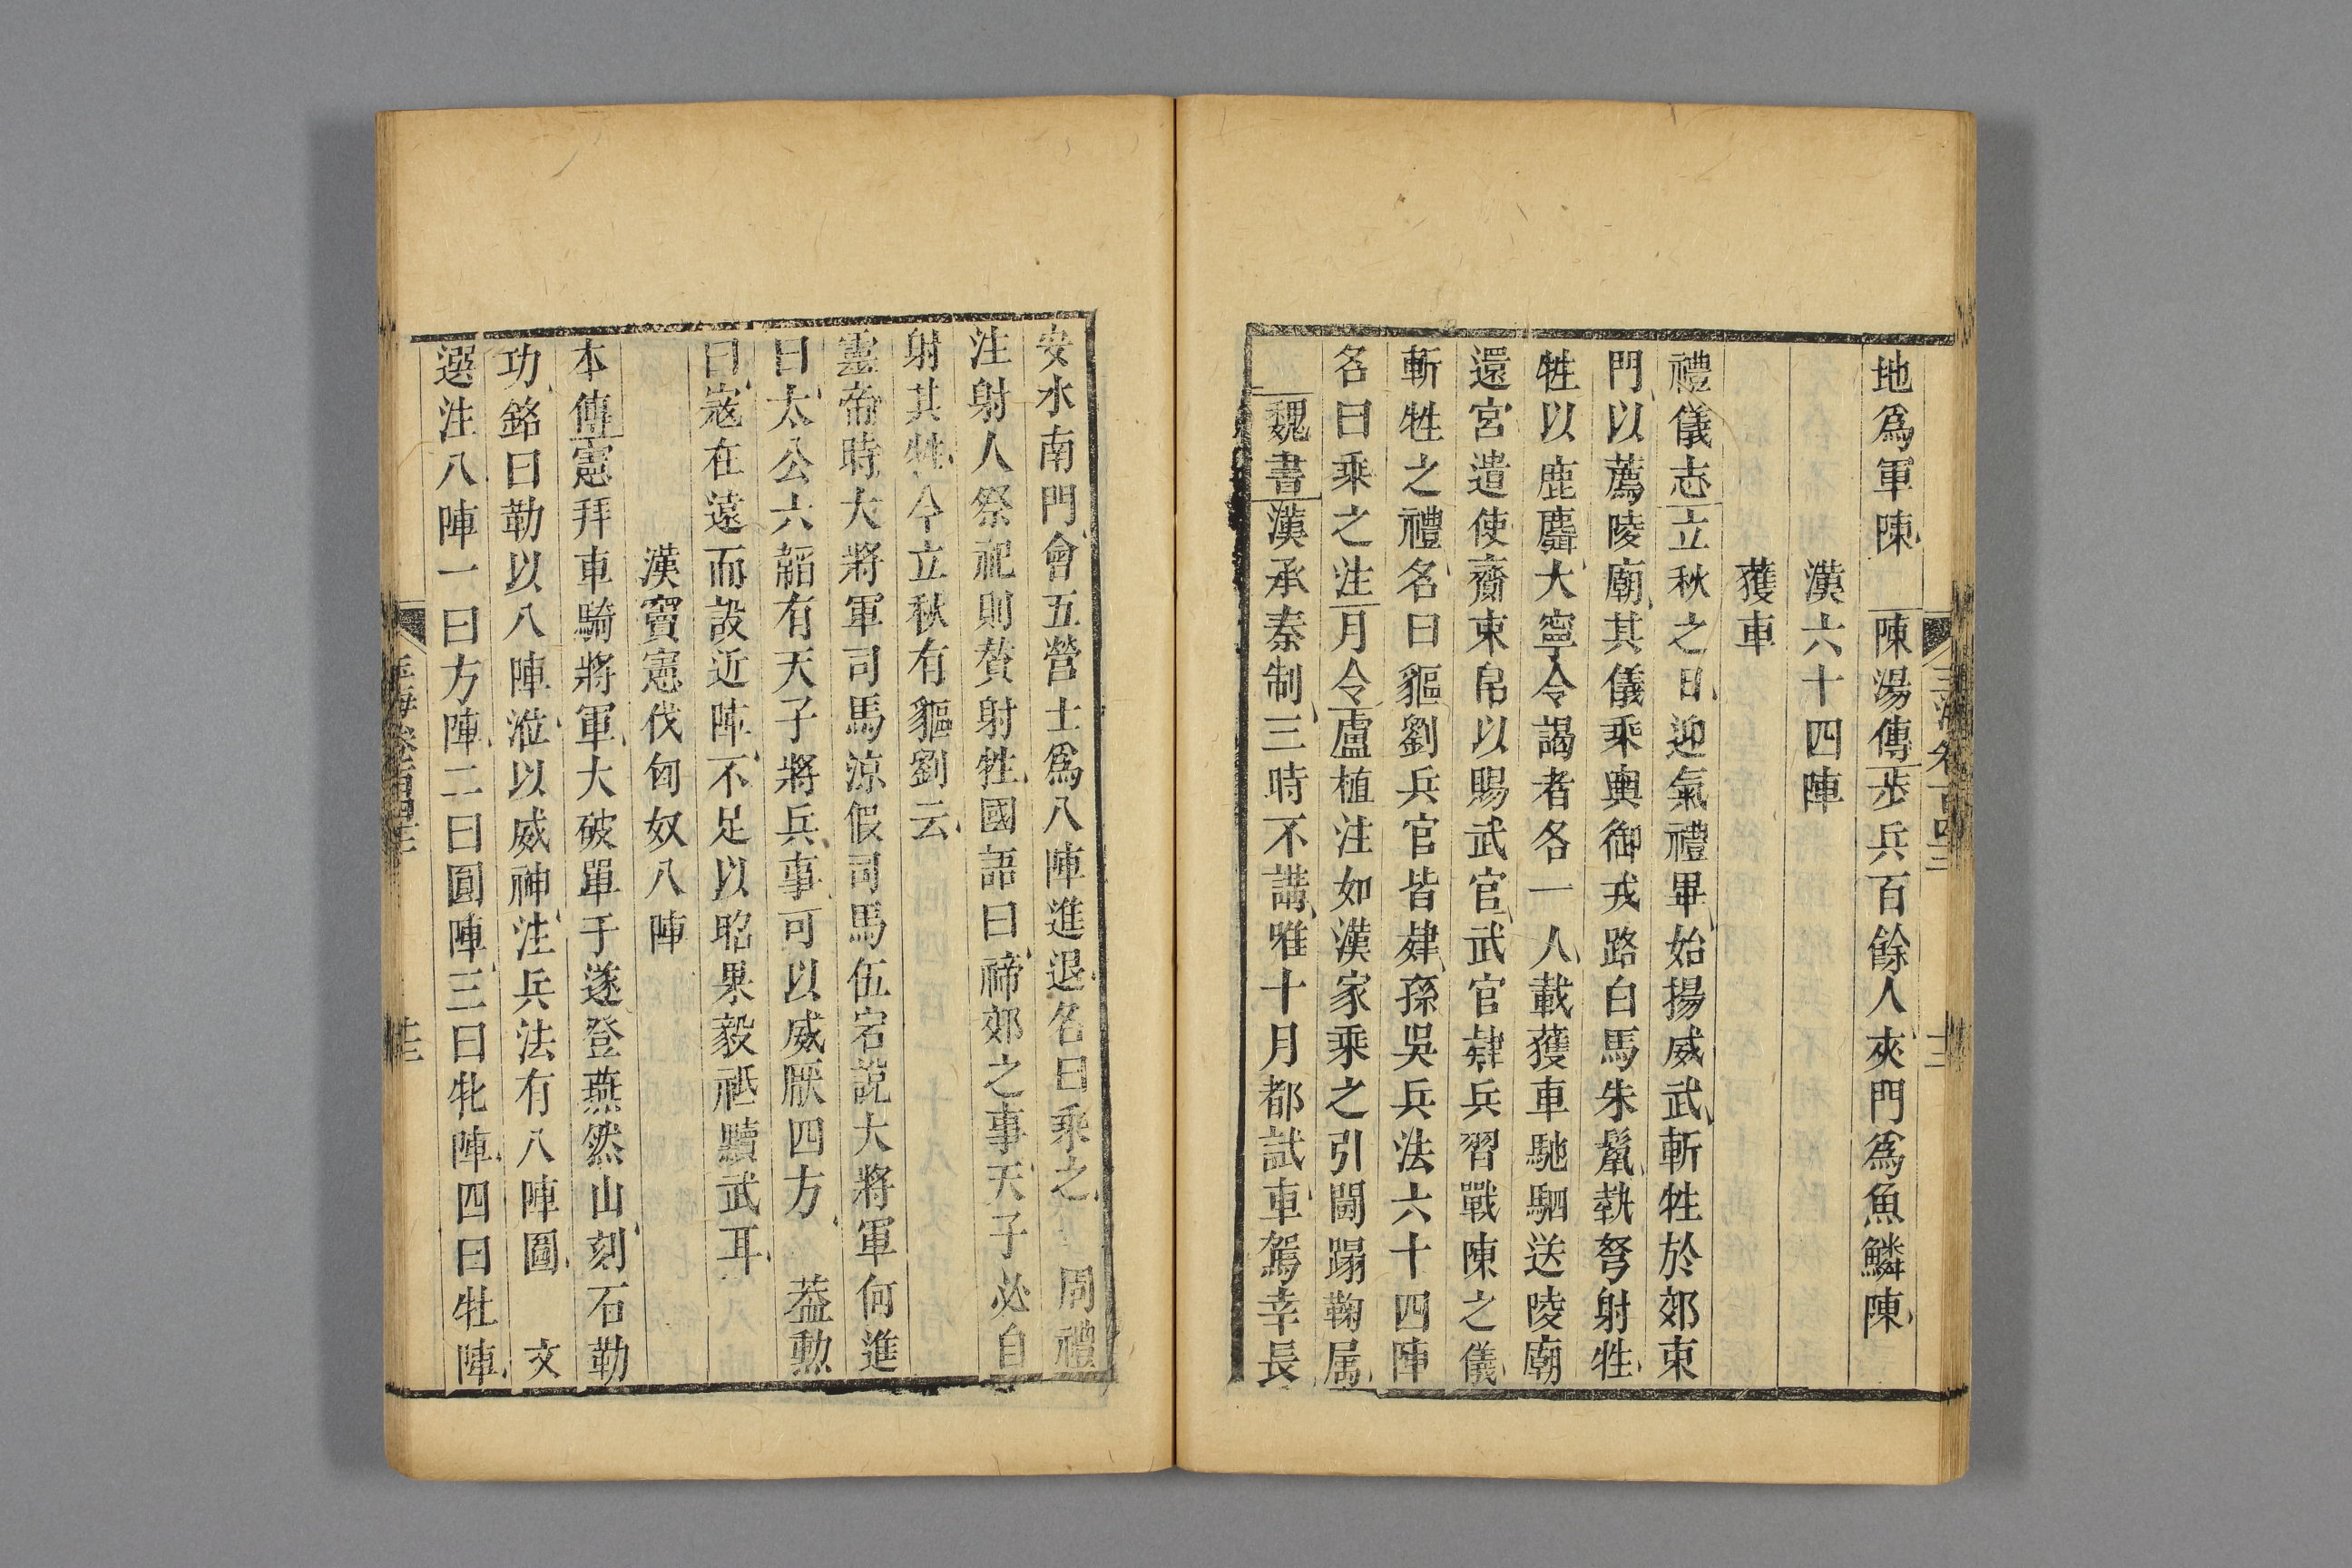 地爲軍陳　陳湯傳步兵百餘人夾門爲魚鱗陳
漢六十四陣
獲車
禮儀志立秋之日迎氣禮畢始揚威武斬牲於郊東
門以薦陵廟其儀乘輿御戎路白馬朱鬣執弩射牲
牲以鹿麛大宰令謁者各一人載獲車馳駟送陵廟
還宮遣使齎束帛以賜武官武官肄兵習戰陳之儀
斬牲之禮名曰貙劉兵官皆肄孫吳兵法六十四陣
名曰乘之注月令盧植注如漢家乘之引闗蹋鞠属
魏書漢承秦制三時不講唯十月都試車駕幸長
安水南門會五營士爲八陣進退名曰乘之　周禮
注射人祭祀則贊射牲國語曰禘郊之事天子必自
射其牲今立秋有貙劉云
靈帝時大將軍司馬涼假司馬伍宕說大將軍何進
曰太公六韜有天子將兵事可以威厭四方　葢勳
曰寇在遠而設近陣不足以昭果毅祗黷武耳
漢竇憲伐匈奴八陣
本傳憲拜車騎將軍大破單于遂登燕然山刻石勒
功銘曰勒以八陣涖以威神注兵法有八陣圖　文
選注八陣一曰方陣二曰圓陣三曰牝陣四曰牡陣